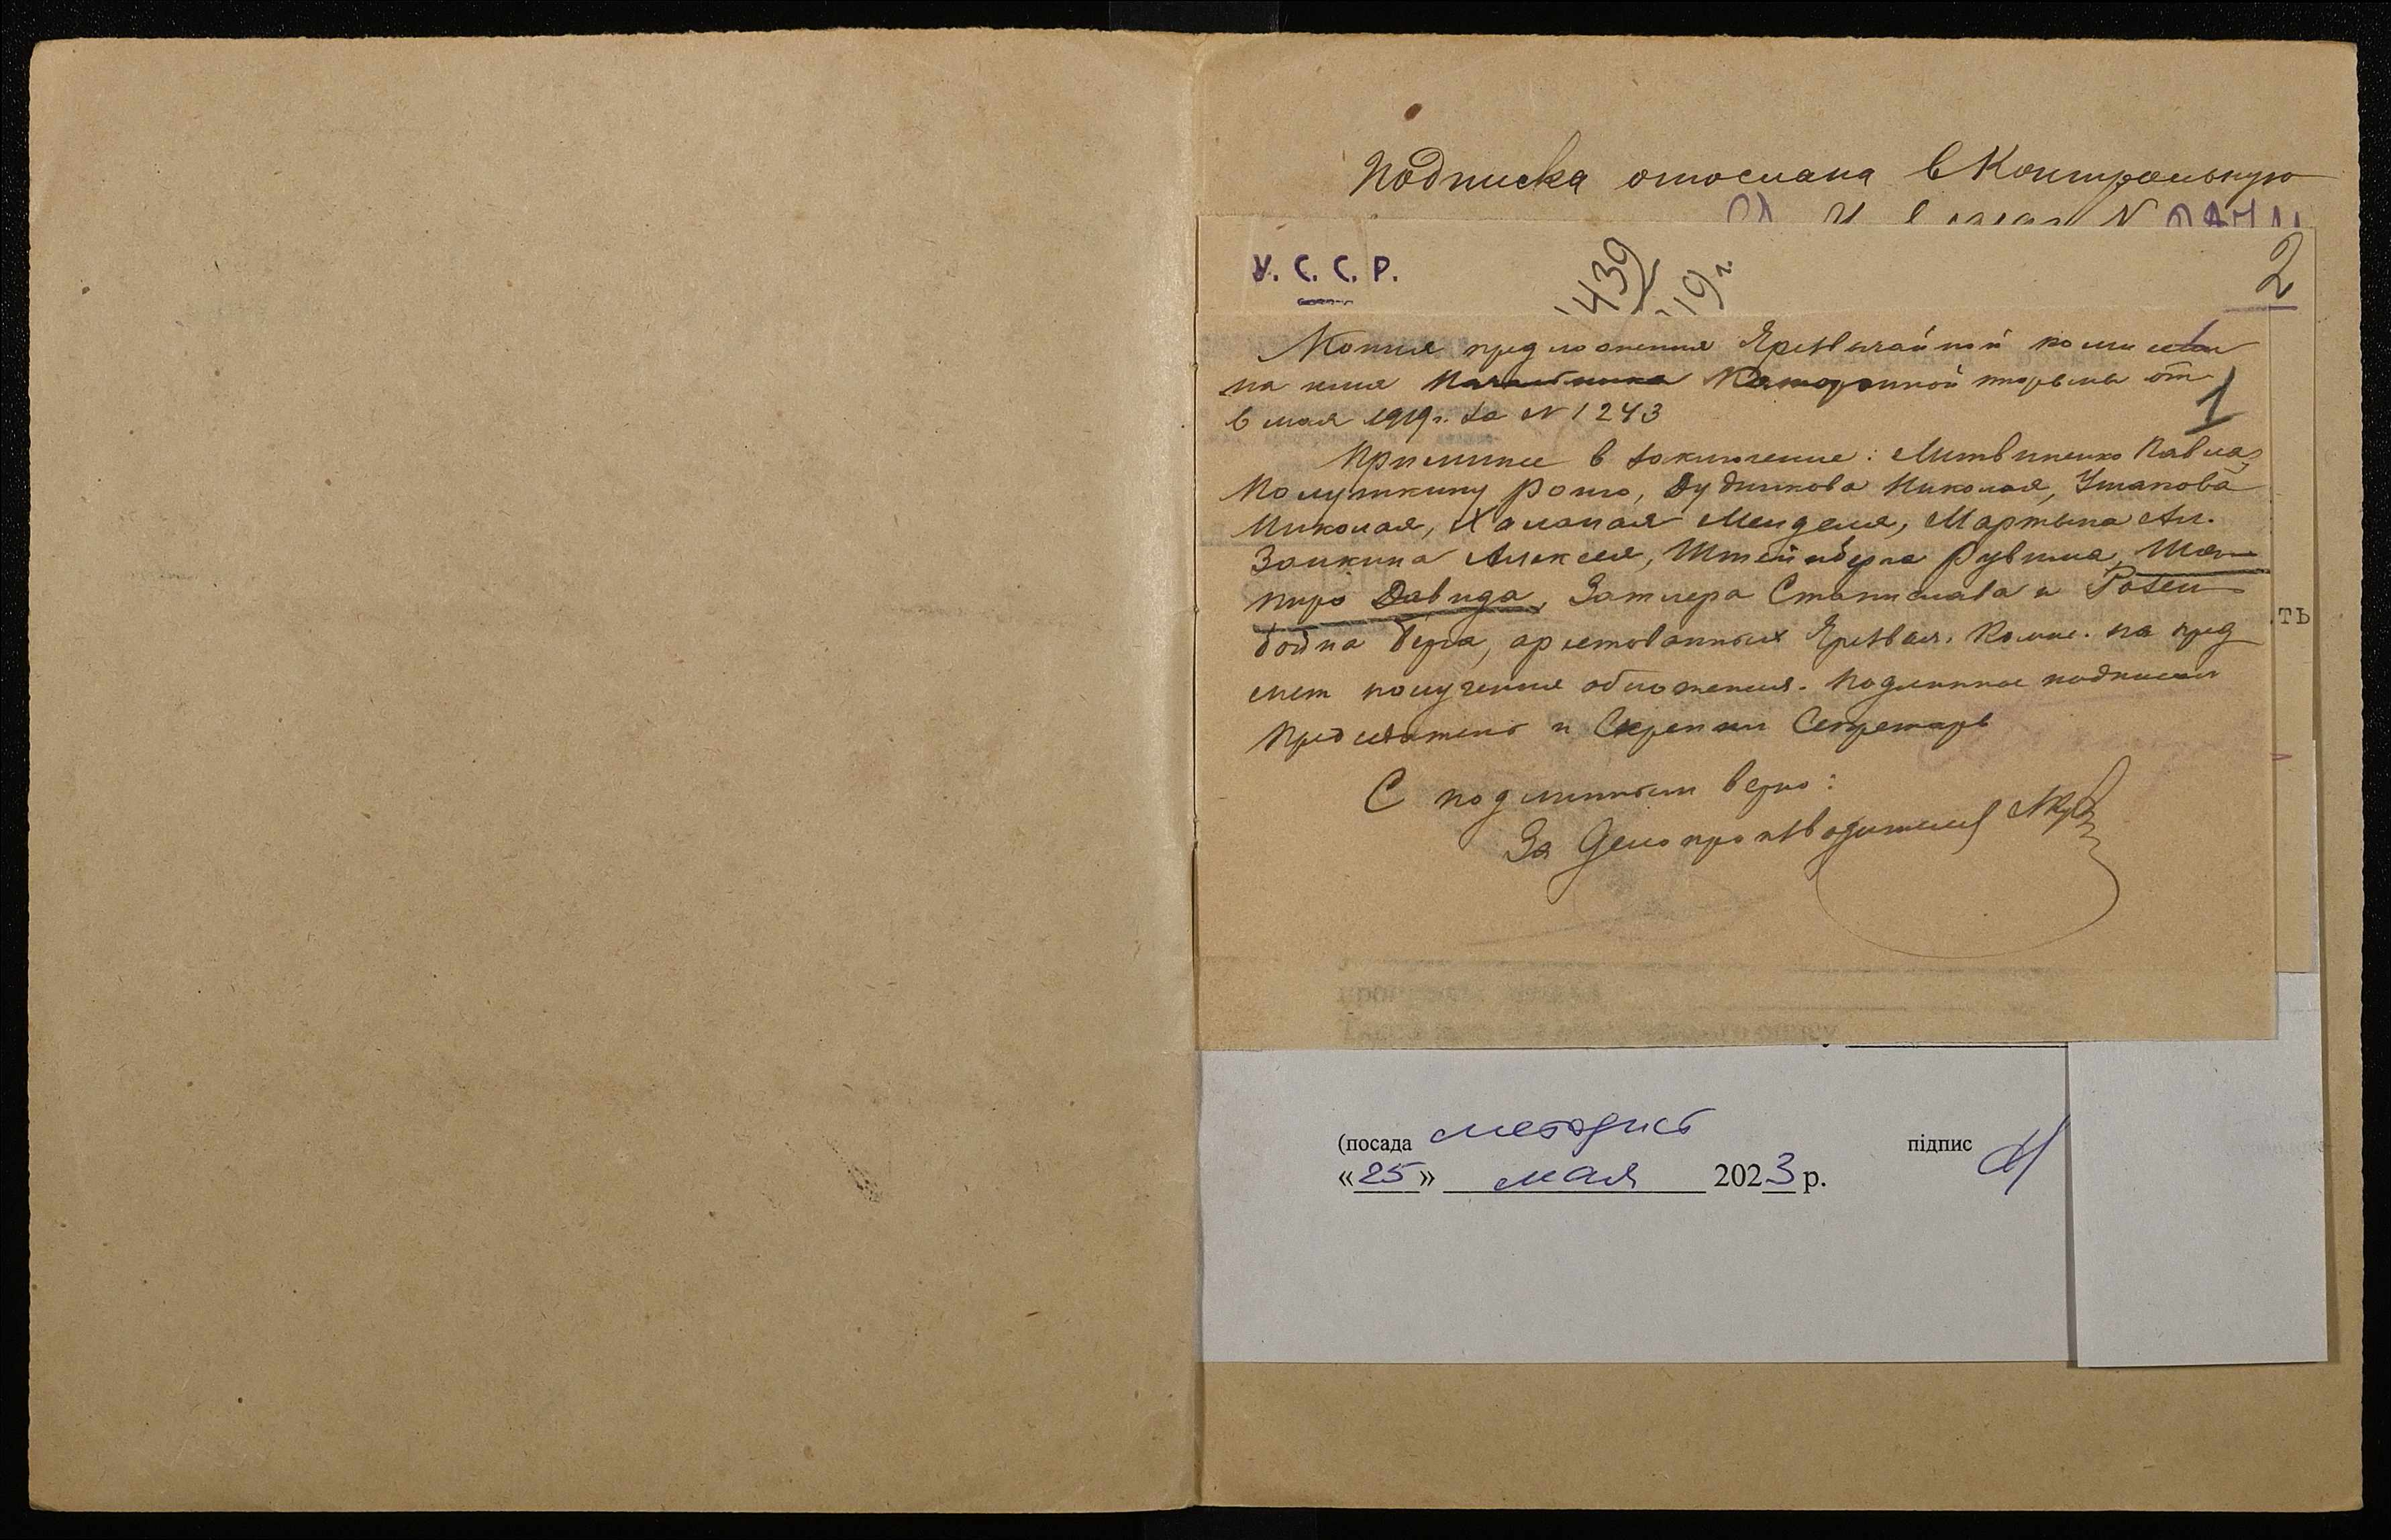 Подписка отослана в Контрольную
У. С. С. Р.
439/19 г.
2
Копия предложения Чрезвычайной комиссии
на имя Начальника Каторжной тюрьмы от
6 мая 1919 г. за N 1243
1
Примите в заключение: Литвиненко Павла,
Полушкину Розю, Дудникова Николая, Ушакова
Николая, Халапая Менделя, Мартына Ал.
Заикина Алексея, Штейнберга Рувима, Ша-
пиро Давида, Затлера Станислава и Розен-
бойма Бера, арестованных Чрезвыч. Комис. на пред
мет получения обложения. Подлинное подписали
Председатель и Скрепил Секретарь
ть
С подлинным верно:
За Делопроизводителя
(посада методист підпис
«25» мая 2023 р.